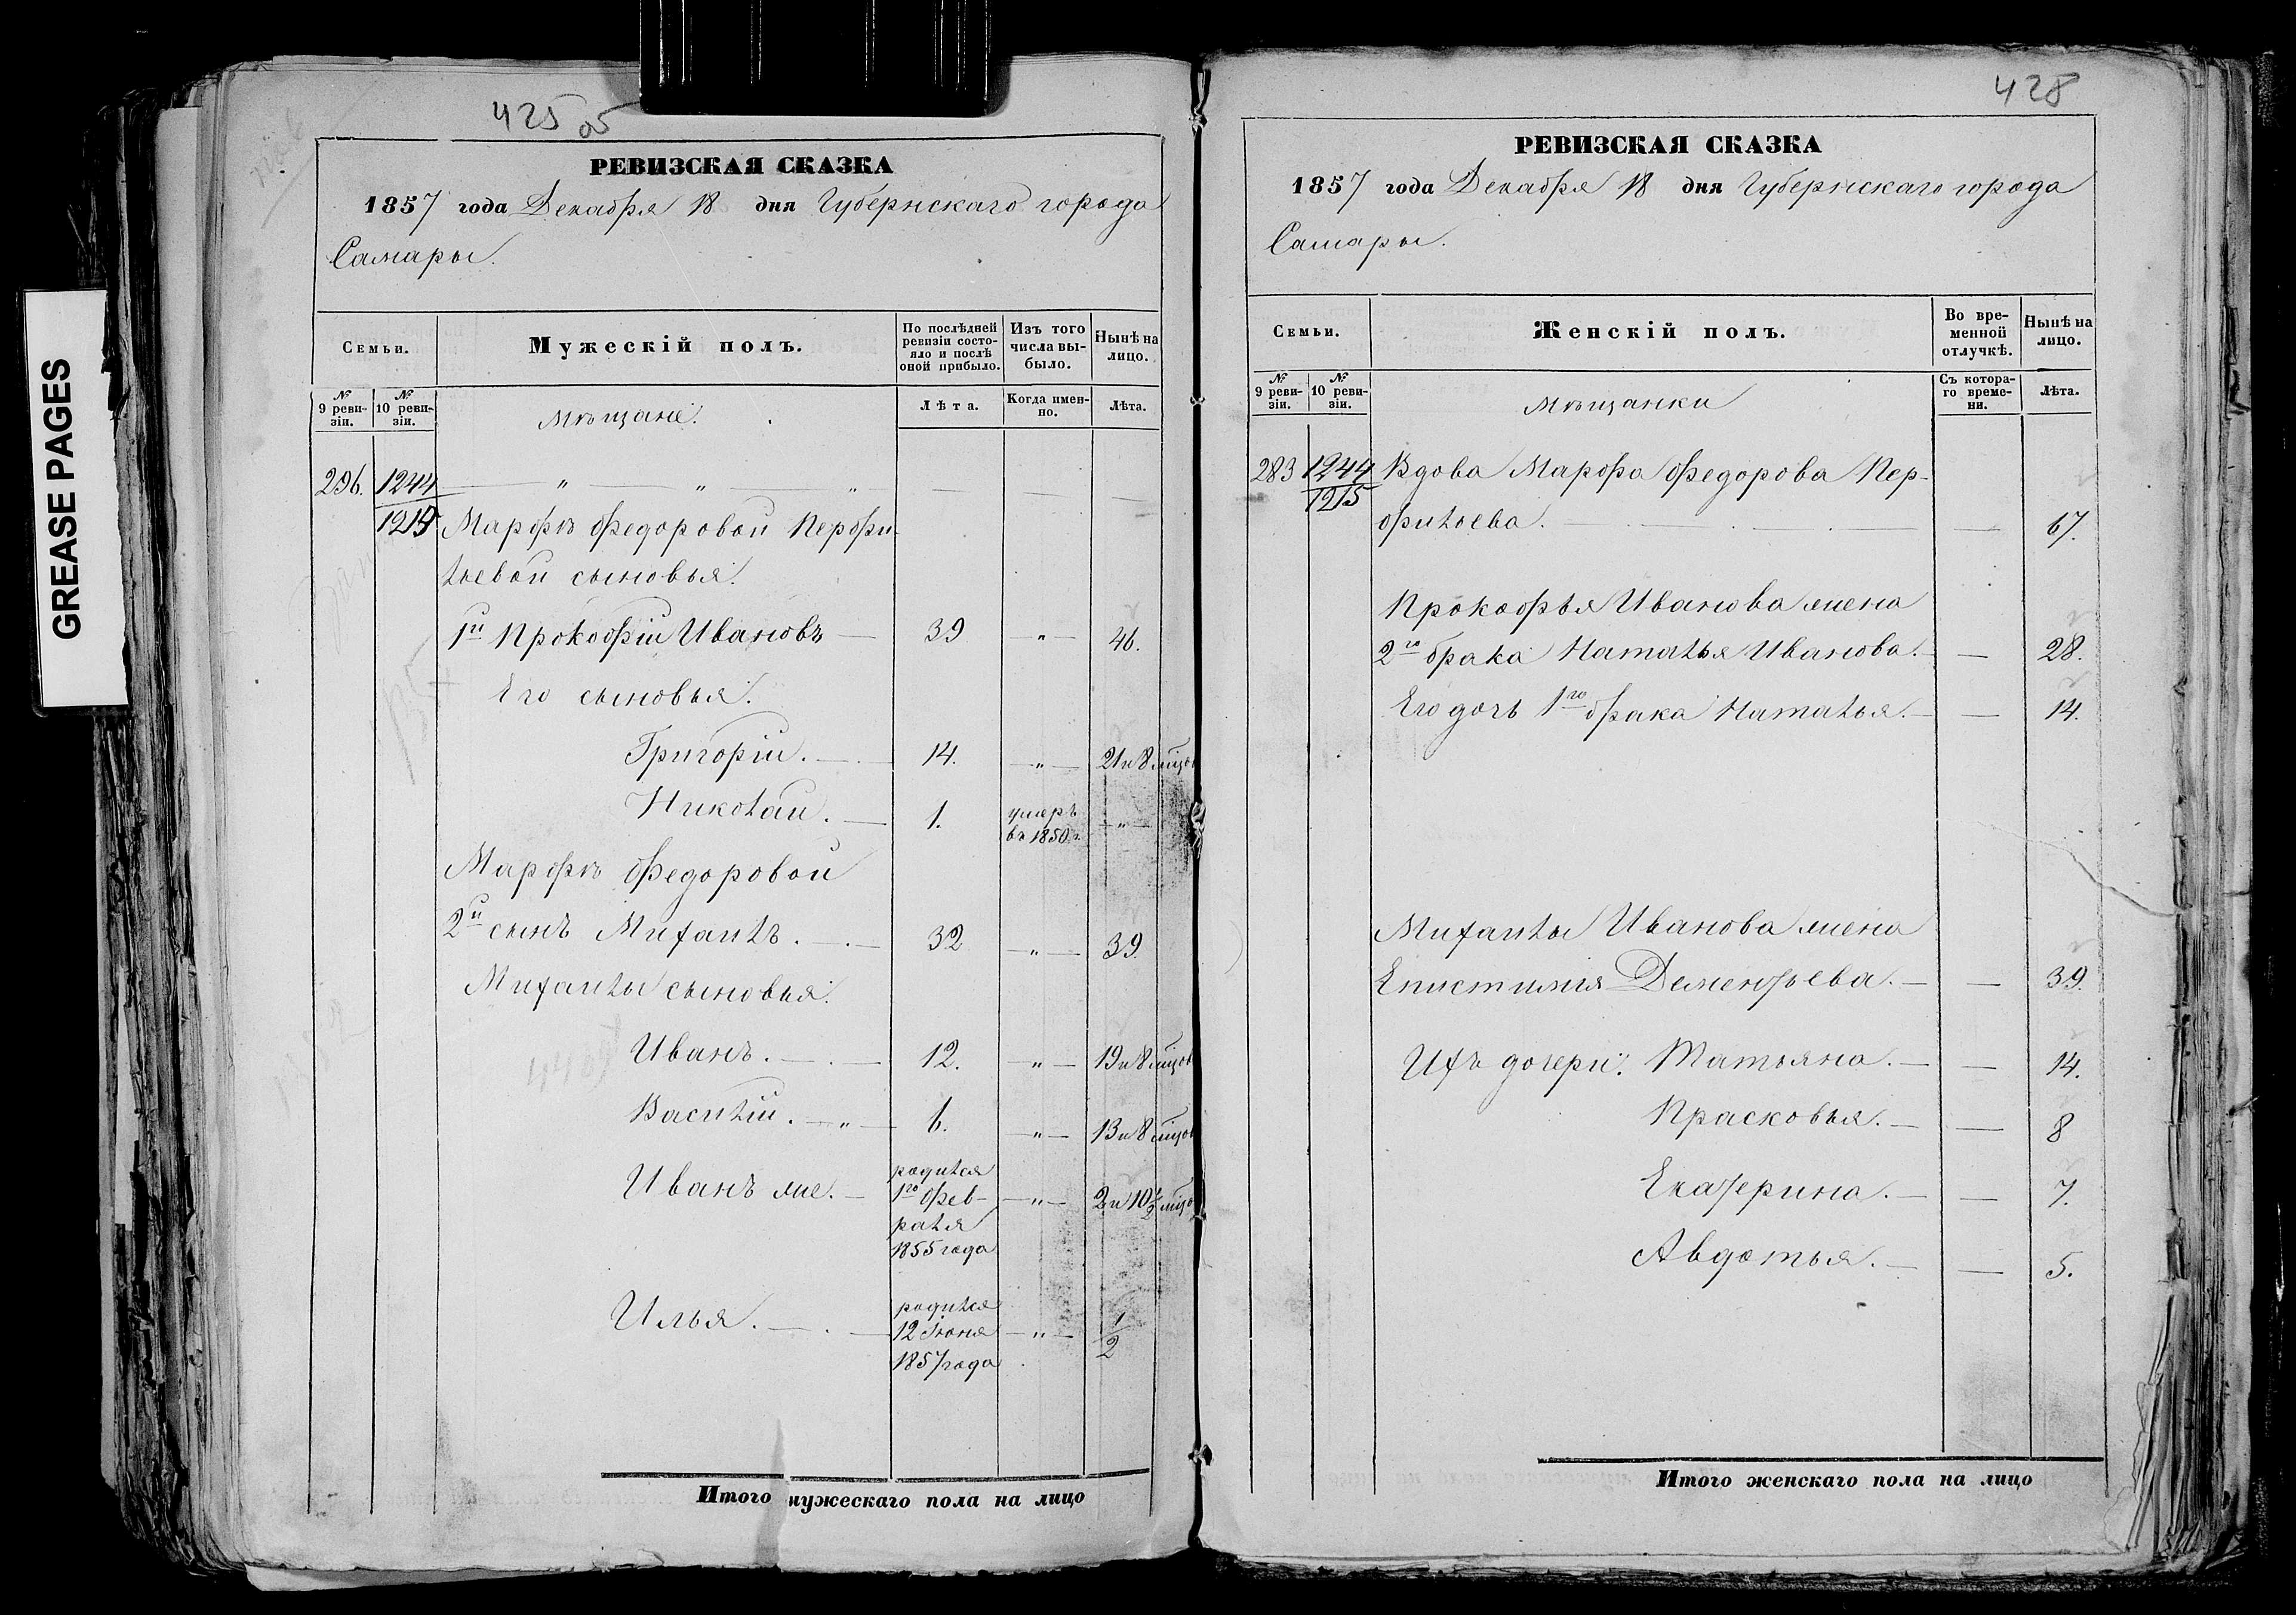 GREASE PAGES
425 об
РЕВИЗСКАЯ СКАЗКА
1857 года Декабря 18 дня Губернскаго города
Самары.
Семьи.
Мужескій полъ.
По послѣдней ревизіи состояло и послѣ оной прибыло.
Изъ того числа выбыло.
Нынѣ на лицо.
№ 9 ревизіи.
№ 10 ревизіи.
Мѣщане.
Лѣта.
Когда именно.
Лѣта.
296. 1244 — " — " — "
1215 Марфѣ Федоровой Перфи-
льевой сыновья.
1й Прокофій Ивановъ — 39 — " — 46.
Его сыновья.
Григорій. — 14. — " — 21 и 8 мцов
Николай. — 1. умеръ въ 1850 г. — " —
Марфѣ Федоровой
2й сынъ Михаилъ. — 32 — " — 39.
Михаилы сыновья.
Иванъ. — 12. — " — 19 и 8 мцов
Василій. — " — 6. — " — 13 и 8 мцов
Иванъ же. — родился 1го Февраля 1855 года — " — 2 и 10 1/2 мцов
Илья. — родился 12 Іюня 1857 года — " — 1/2
Итого мужескаго пола на лицо
428
РЕВИЗСКАЯ СКАЗКА
1857 года Декабря 18 дня Губернскаго города
Самары.
Семьи.
Женскій полъ.
Во временной отлучкѣ.
Нынѣ на лицо.
№ 9 ревизіи.
№ 10 ревизіи.
Мѣщанки
Съ котораго времени.
Лѣта.
283 1244 Вдова Марфа Федорова Пер-
1215 фильева. — 67.
Прокофья Иванова жена
2го брака Наталья Иванова. — 28.
Его дочь 1го брака Наталья. — 14.
Михаилы Иванова жена
Епистимія Дементьева. — 39.
Ихъ дочери: Татьяна. — 14.
Прасковья. — 8
Екатерина. — 7.
Авдотья. — 5.
Итого женскаго пола на лицо